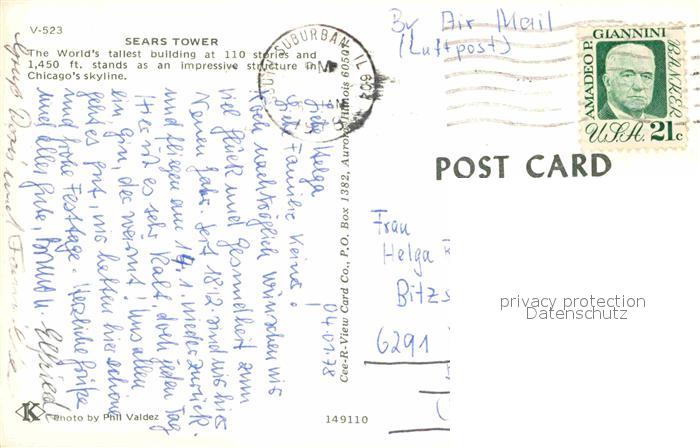 V-523
SEARS TOWER
The World's tallest building at 110 stories and
1,450 ft. stands as an impressive structure in
Chicago's skyline.
By Air Mail
(Luftpost)
SUBURBAN IL 604
PM
AMADEO P. GIANNINI
BANKER
U.S.A. 21c
POST CARD
04.01.78
Liebe Helga
Liebe Familie
Euch nachträglich wünschen wir
viel Glück und Gesundheit zum
Neuen Jahr. Seit 18.12. sind wir hier
und fliegen am 14.1. wieder zurück.
Hier ist es sehr kalt, doch jeden Tag
ein Gin, der wärmt! Uns allen
geht es gut, wir hatten hier schöne
und frohe Festtage. Herzliche Grüße
und alles Gute,
Cee-R-View Card Co., P.O. Box 1382, Aurora, Illinois 60507
Frau
Helga
Bitzs
6291
privacy protection
Datenschutz
K
Photo by Phil Valdez
149110